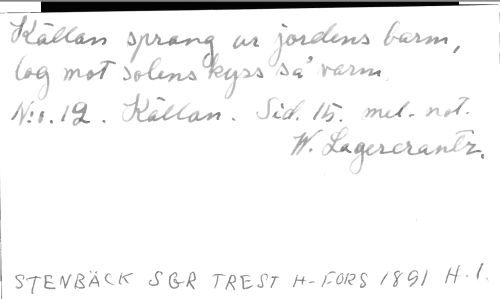 Källan sprang ur jordens barm,
log mot solens kyss så varm.
N:o.12. Källan. Sid. 15. mel. not.
W. Lagercrantz.
STENBÄCK SGR TREST H-FORS 1891 H.1.